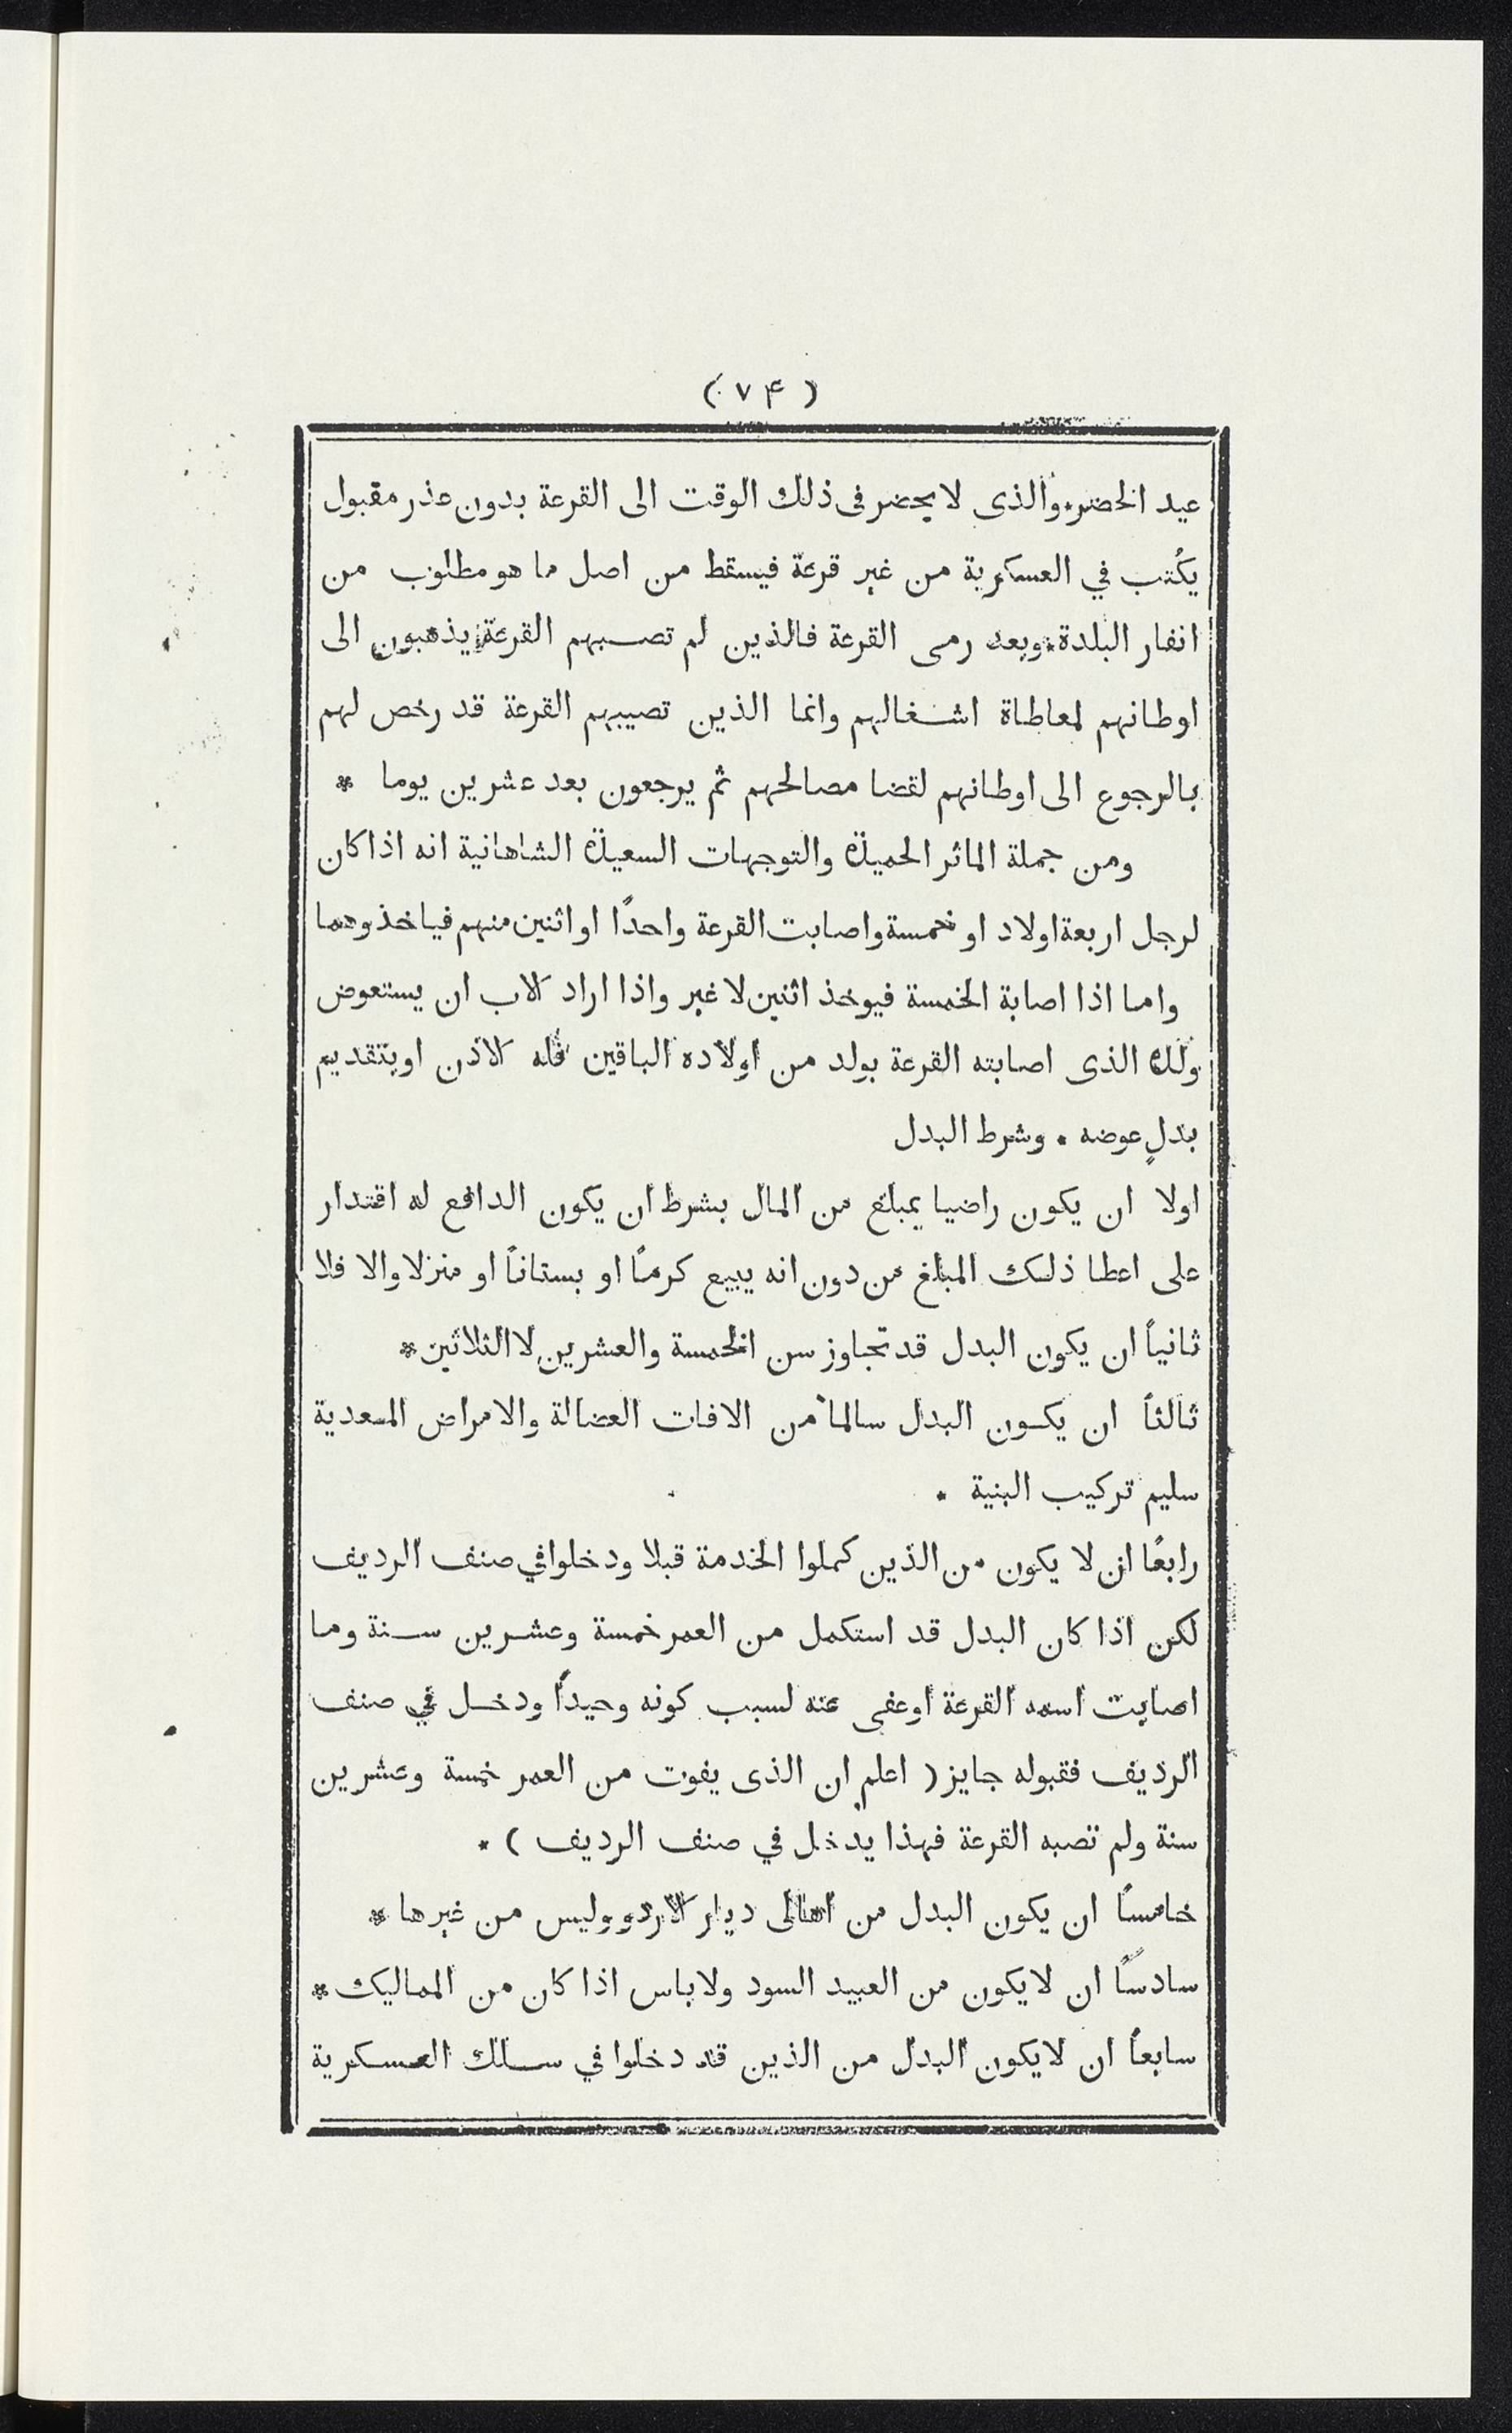 (٧۴)
عيد الخضر٭والذى لا يحضر فى ذلك الوقت الى القرعة بدون عذر مقبول
يكتب في العسكرية من غير قرعة فيسقط من اصل ما هو مطلوب من
انفار البلدة٭وبعد رمى القرعة فالذين لم تصبهم القرعة يذهبون الى
اوطانهم لمعاطاة اشغالهم وانما الذين تصيبهم القرعة قد رخص لهم
بالرجوع الى اوطانهم لقضا مصالحهم ثم يرجعون بعد عشرين يوما ٭
ومن جملة الماثر الحميدة والتوجهات السعيدة الشاهانية انه اذا كان
لرجل اربعة اولاد او خمسة واصابت القرعة واحدًا او اثنين منهم فياخذوهما
واما اذا اصابة الخمسة فيوخذ اثنين لا غير واذا اراد الاب ان يستعوض
ولده الذى اصابته القرعة بولد من اولاده الباقين فله الاذن او بتقديم
بدلٍ عوضه ٭ وشرط البدل
اولا ان يكون راضيا بمبلغ من المال بشرط ان يكون الدافع له اقتدار
على اعطا ذلك المبلغ من دون انه يبيع كرمًا او بستاناً او منزلا والا فلا
ثانياً ان يكون البدل قد تجاوز سن الخمسة والعشرين لا الثلاثين٭
ثالثاً ان يكون البدل سالما من الافات العضالة والامراض المعدية
سليم تركيب البنية ٭
رابعًا ان لا يكون من الذين كملوا الخدمة قبلا ودخلوا في صنف الرديف
لكن اذا كان البدل قد استكمل من العمر خمسة وعشرين سنة وما
اصابت اسمه القرعة او عفى عنه لسبب كونه وحيداً ودخل في صنف
الرديف فقبوله جايز ( اعلم ان الذى يفوت من العمر خمسة وعشرين
سنة ولم تصبه القرعة فهذا يدخل في صنف الرديف ) ٭
خامسًا ان يكون البدل من اهالى ديار الاردو وليس من غيرها ٭
سادسًا ان لا يكون من العبيد السود ولا باس اذا كان من المماليك ٭
سابعاً ان لا يكون البدل من الذين قد دخلوا في سلك العسكرية